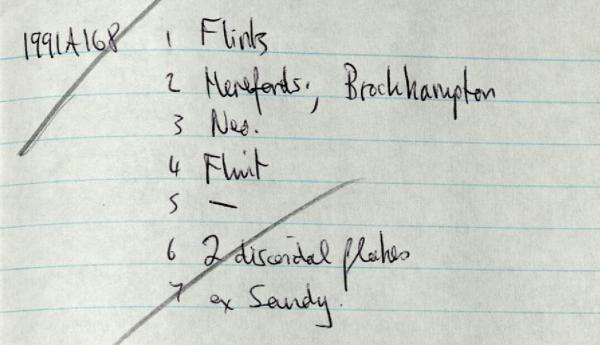 1991A168 1 Flints
2 Herefords., Brockhampton
3 Neo.
4 Flint
5 —
6 2 discoidal flakes
7 ex Sandy.